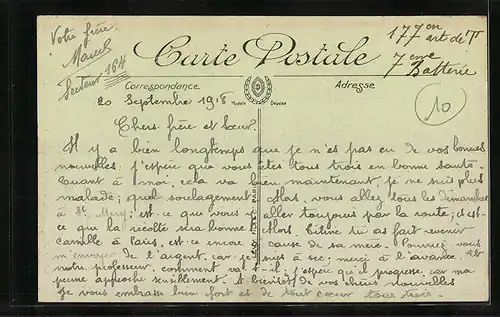 Votre frère
Marcel
Secteur 184
177 em
art de T
7 eme
Batterie
Carte Postale
Correspondance
Adresse
Modèle Déposé
10
20 Septembre 1918
Chers frère et sœur.
Il y a bien longtemps que je n'ai pas eu de vos bonnes
nouvelles. j'espère que vous êtes tous trois en bonne santé.
Quant à moi, cela va bien maintenant, je ne suis plus
malade; quel soulagement. Alors, vous allez tous les dimanches
à St. Mery; est-ce que vous y aller toujours par la route; et est-
ce que la récolte sera bonne. Alors. Titine tu as fait revenir
Camille à Paris, est-ce encore cause de sa mère. Pourriez-vous
m'envoyer de l'argent, car je suis à sec; merci à l'avance. Et
notre professeur, comment va-t-il; j'espère qu'il progresse, car ma
perme approche sensiblement. A bientôt de vos chères nouvelles
Je vous embrasse bien fort et de tout cœur tous trois.